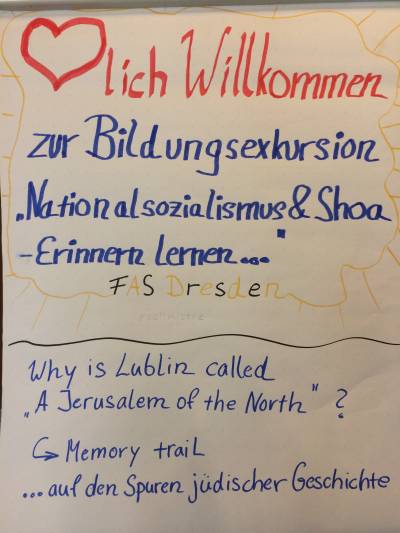 lich Willkommen
zur Bildungsexkursion
„Nationalsozialismus & Shoa
- Erinnern lernen..."
FAS Dresden
Why is Lublin called
„A Jerusalem of the North" ?
↳ Memory trail
...auf den Spuren jüdischer Geschichte